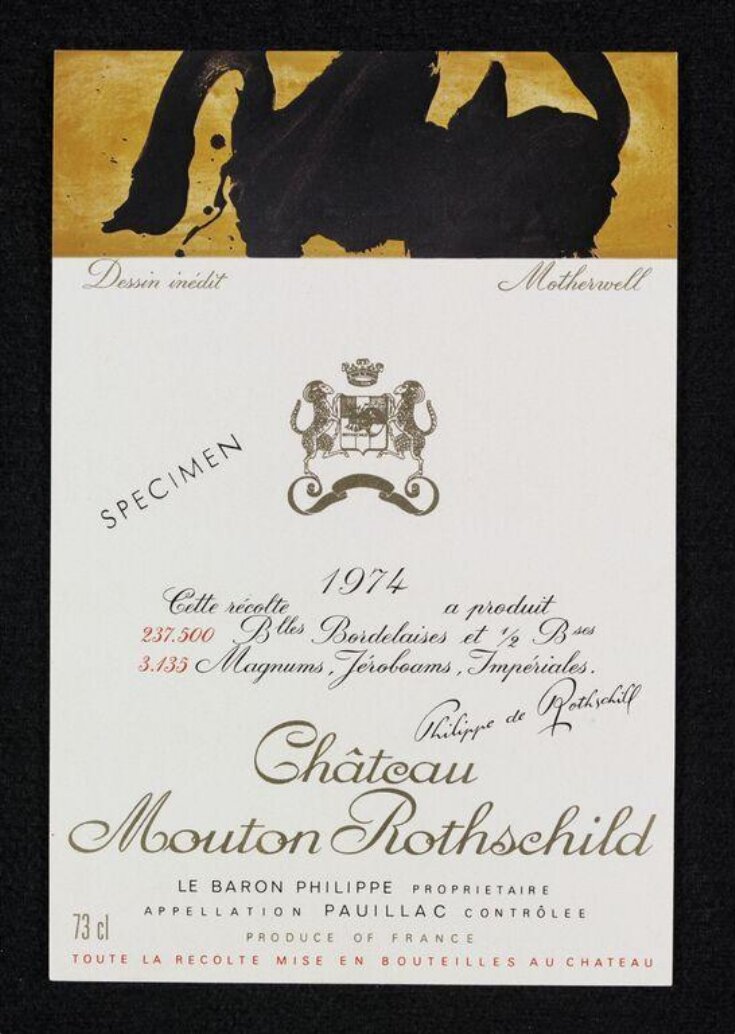 Dessin inédit Motherwell
SPECIMEN
1974
Cette récolte a produit
237.500 Blles Bordelaises et 1/2 Bses
3.135 Magnums, Jéroboams, Impériales.
Philippe de Rothschild
Château
Mouton Rothschild
LE BARON PHILIPPE PROPRIETAIRE
APPELLATION PAUILLAC CONTRÔLEE
73 cl
PRODUCE OF FRANCE
TOUTE LA RECOLTE MISE EN BOUTEILLES AU CHATEAU